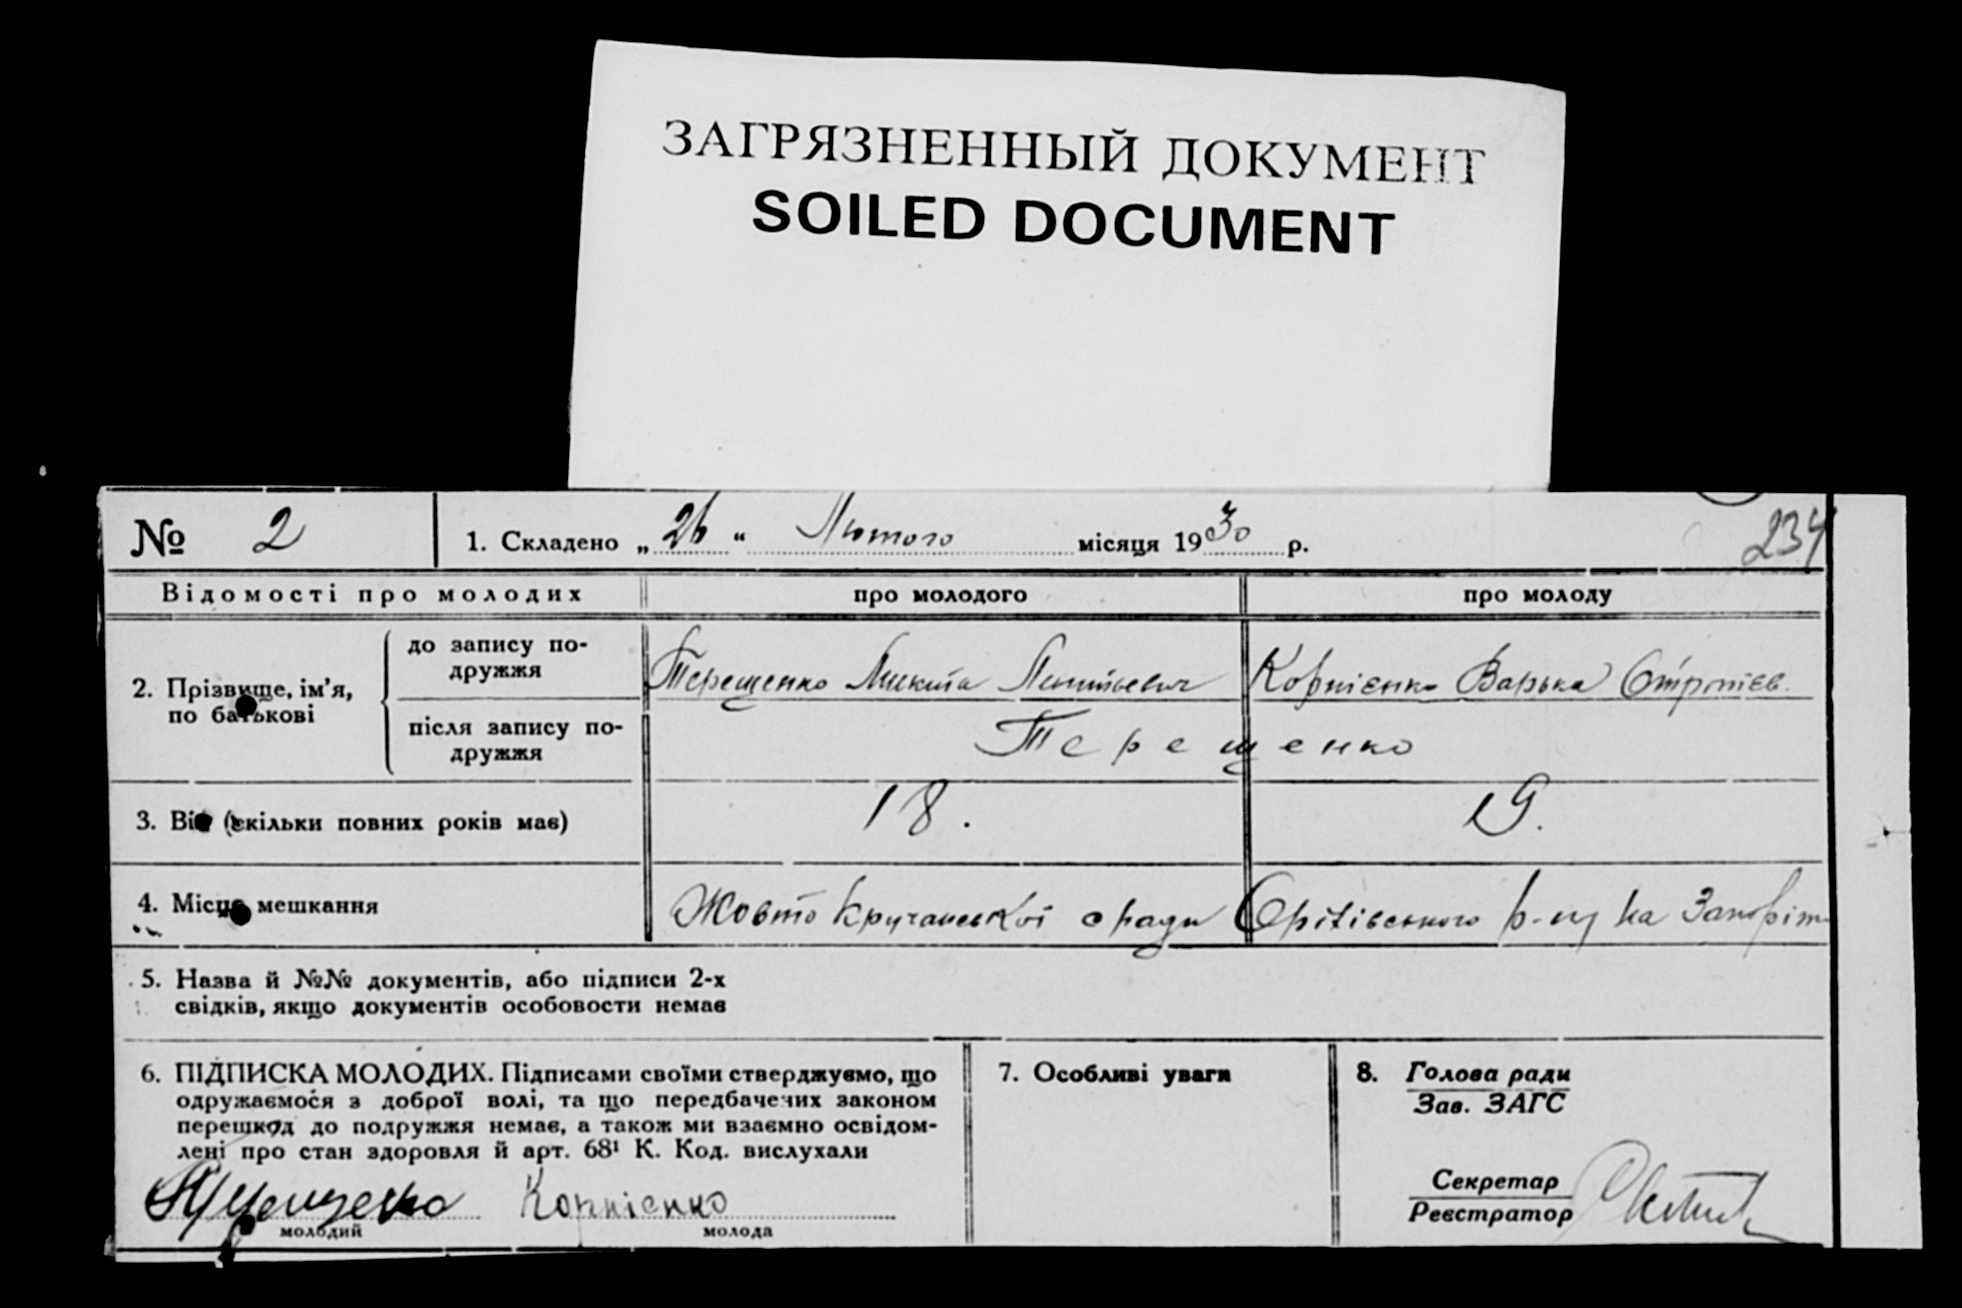 ЗАГРЯЗНЕННЫЙ ДОКУМЕНТ
SOILED DOCUMENT
№ 2
1. Складено „26“ Лютого місяця 1930 р.
234
Відомості про молодих
про молодого
про молоду
2. Прізвище, ім’я, по батькові
до запису подружжя
Терещенко Микита
Корнієнко Варька
після запису подружжя
Терещенко
3. Вік (скільки повних років має)
18.
19.
4. Місце мешкання
Жовто Кручанської с ради Оріхівського р-ну на Запоріж
5. Назва й №№ документів, або підписи 2-х
свідків, якщо документів особовости немає
6. ПІДПИСКА МОЛОДИХ. Підписами своїми стверджуємо, що
одружаємося з доброї волі, та що передбачених законом
перешкод до подружжя немає, а також ми взаємно освідом-
лені про стан здоровля й арт. 68¹ К. Код. вислухали
Терещенко Корнієнко
молодий
молода
7. Особливі уваги
8. Голова ради
Зав. ЗАГС
Секретар
Реєстратор